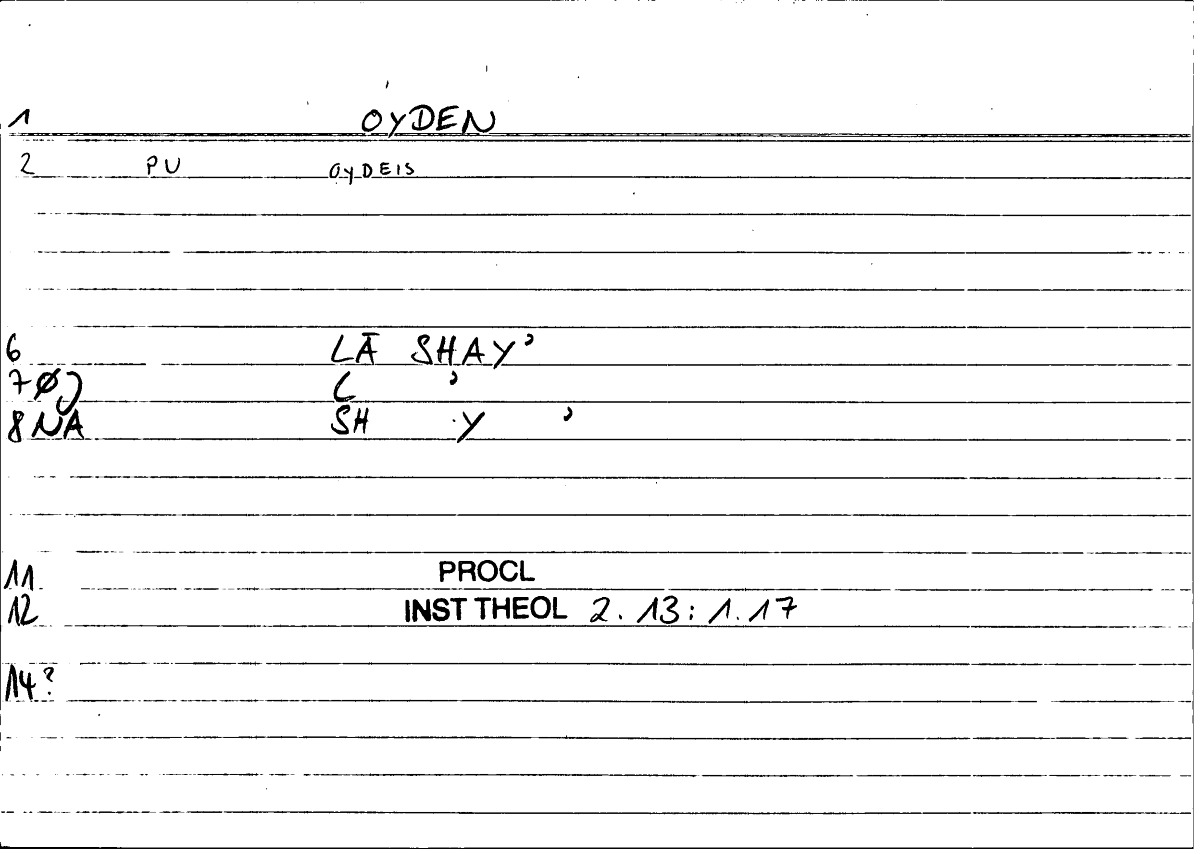 1 OYDEN
2 PU OYDEIS
6 LĀ SHAY'
7 Ø) ( '
8 NA SH Y '
11 PROCL
12 INST THEOL 2.13:1.17
14?